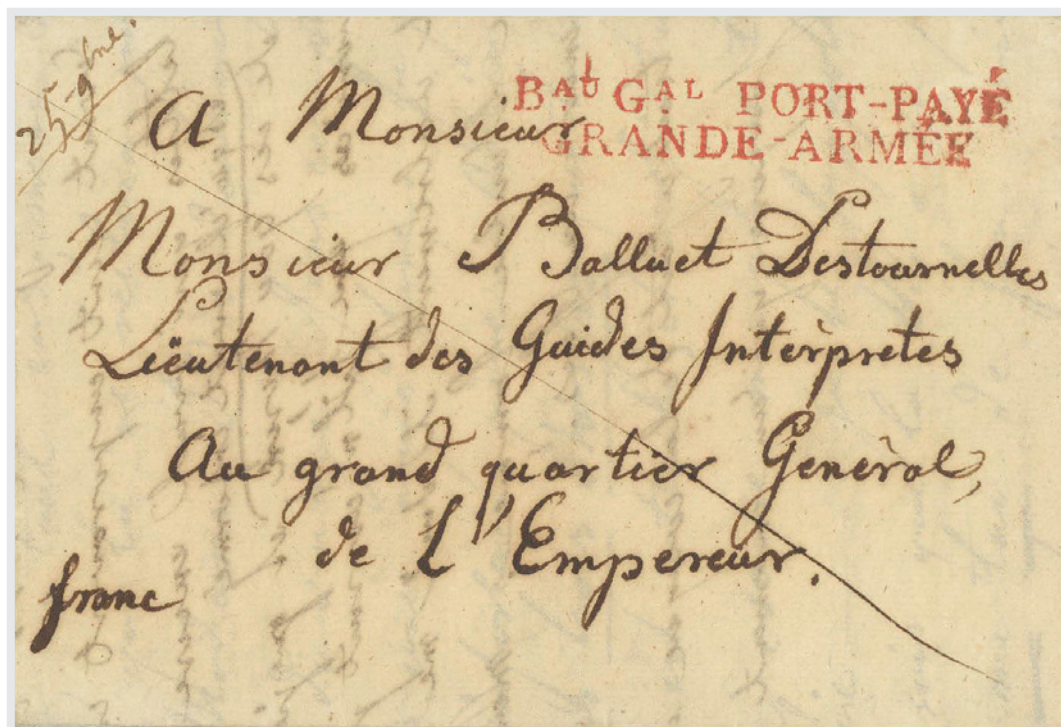 25 9bre.
Bau Gal PORT-PAYÉ
GRANDE-ARMÉE
A Monsieur
Monsieur Balluet Destournelles
Liëutenant des Guides Intèrpretes
Au grand quartier Genèral,
de L'Empereur.
franc